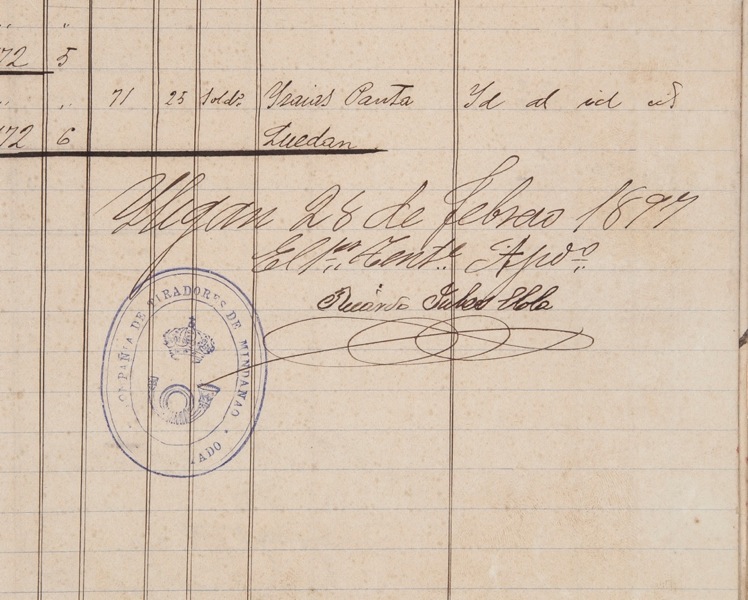 „ „
72 5
„ „ 71 25 Sold.º Ysaias Panta Yd al id id
172 6 Quedan
Yligan 28 de febrero 1897
El 1.er Tent.e Apdo.
Ricardo
COMPAÑIA DE TIRADORES DE MINDANAO
·ADO·